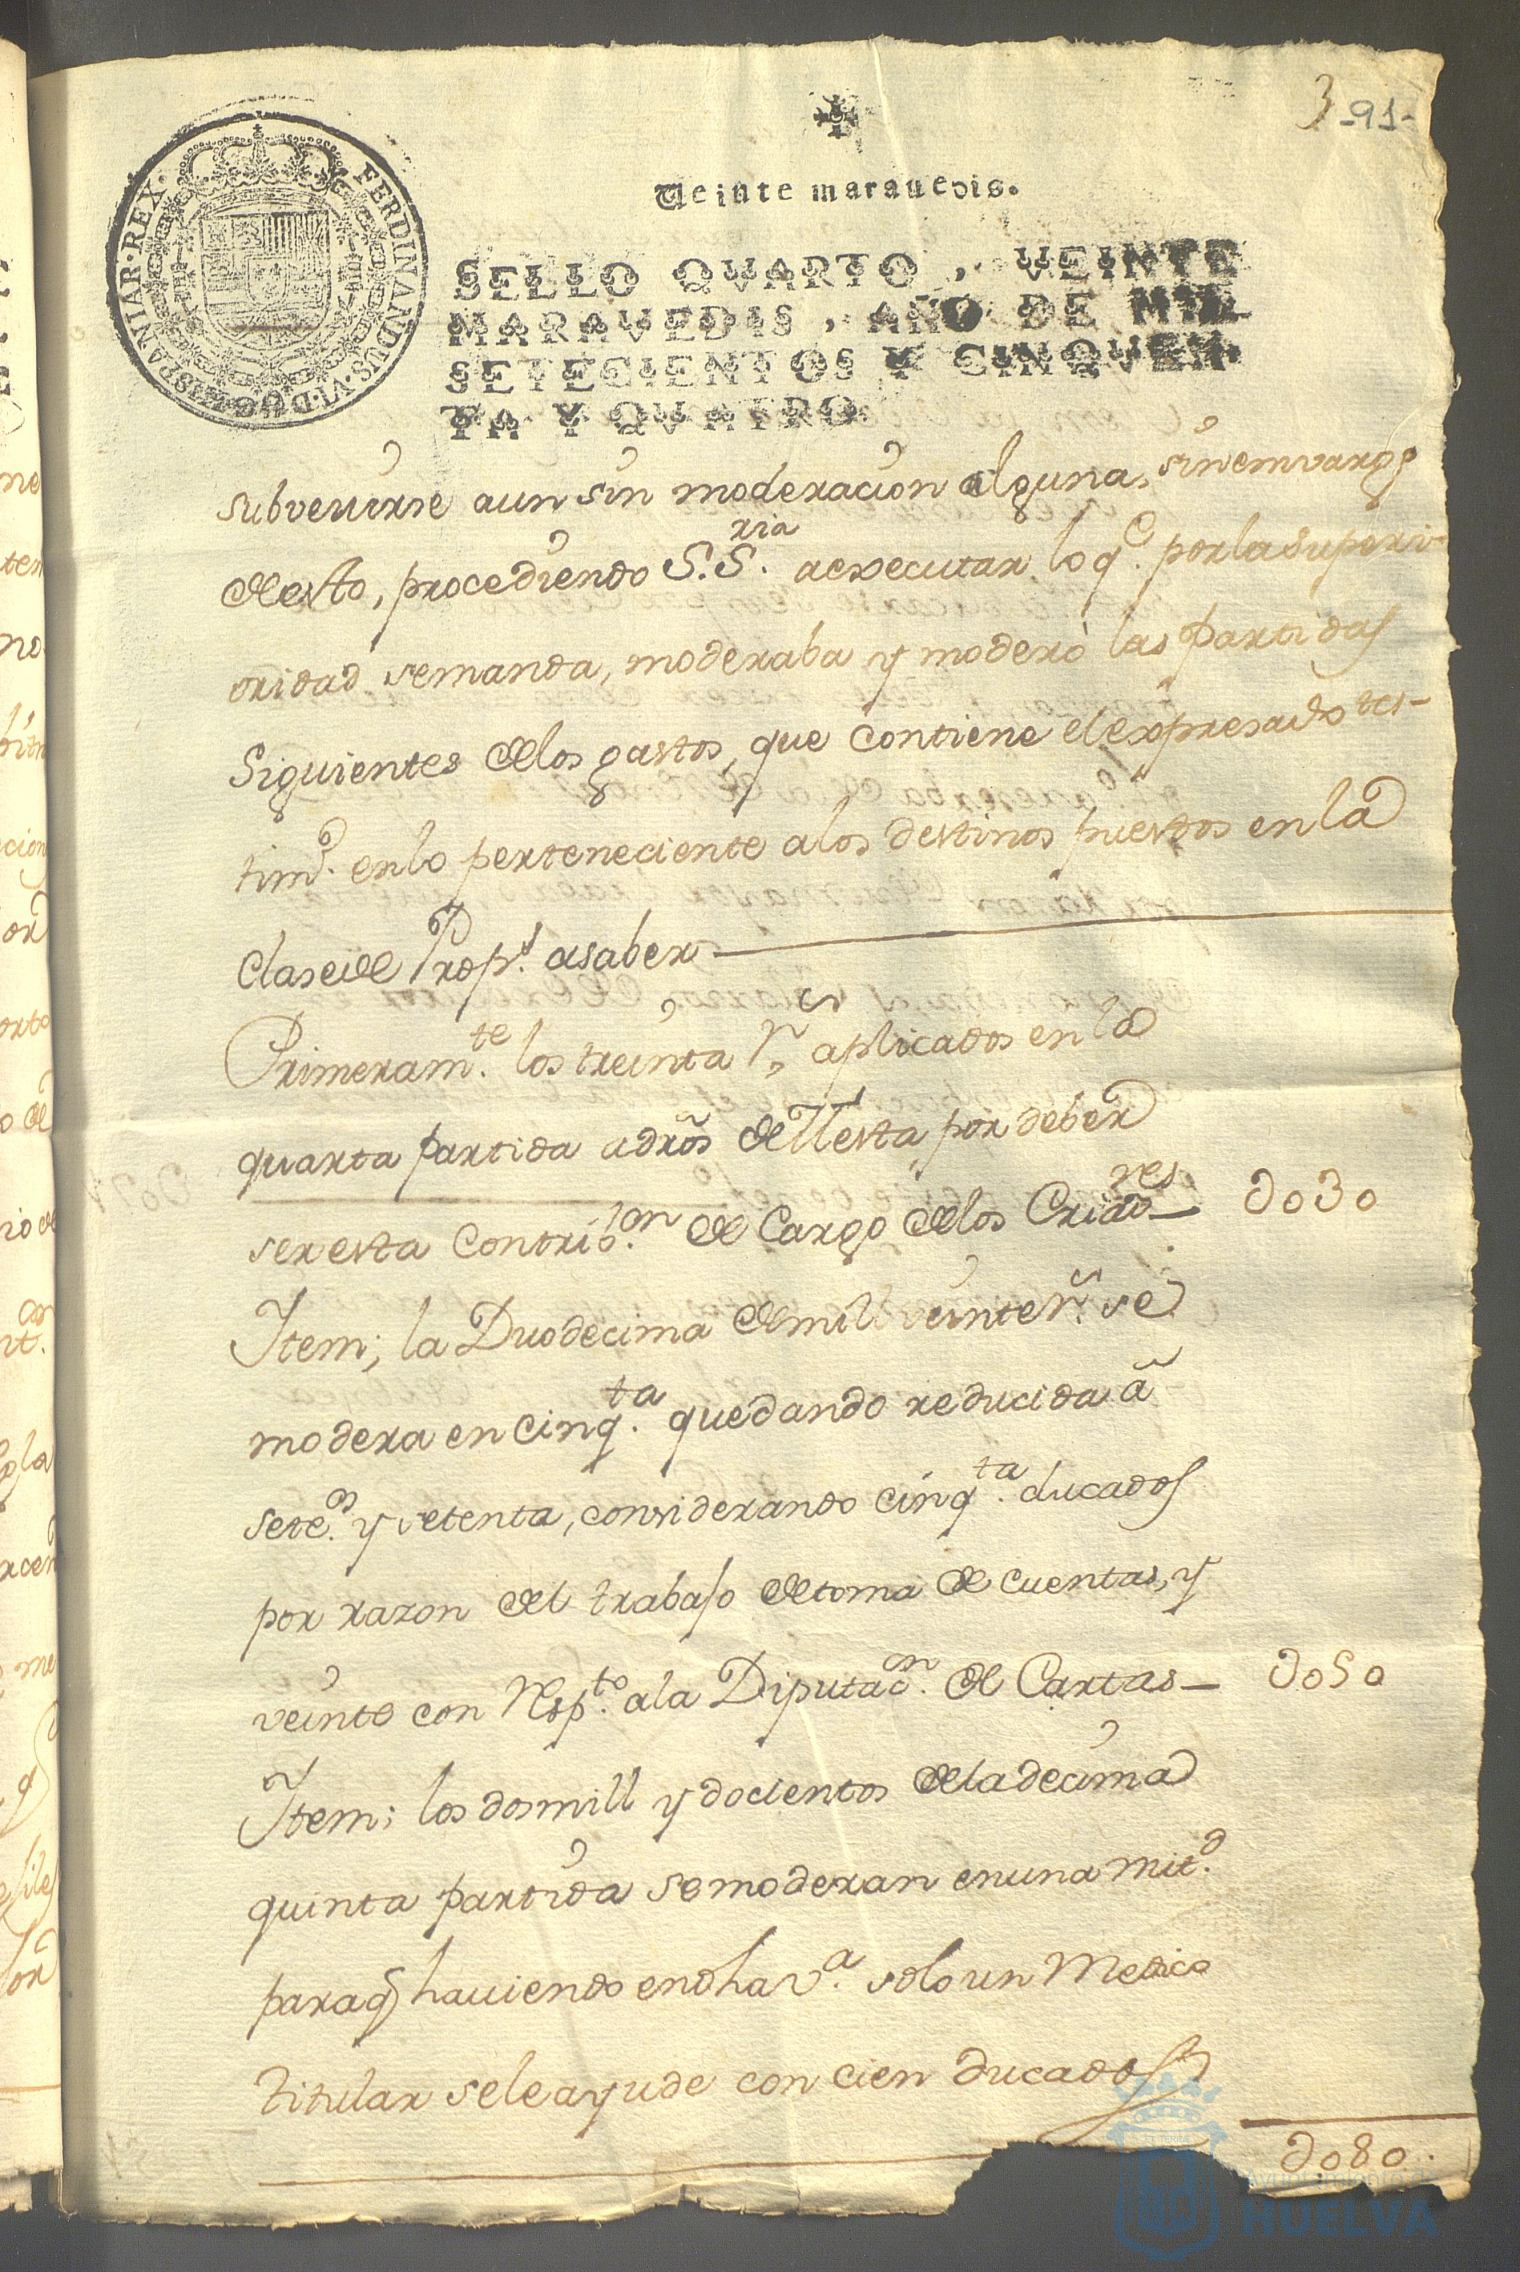 3 -91-
Veinte maravedis.
FERDINANDUS·VI·D·G·HISPANIAR·REX·
SELLO QVARTO, VEINTE
MARAVEDIS, AÑO DE MIL
SETECIENTOS Y CINQVEN-
TA Y QVATRO.
subvenirse aun sin moderacion alguna, sin emvargo
de esto, procediendo S.S.ria a executar lo q.e por la superi-
oridad se manda, moderaba y moderò las partidas
Siguientes de los gastos, que contiene el expresado tes-
tim.o en lo perteneciente a los destinos puestos en la
Clase de Prop.s a saber
Primeram.te los treinta r.s aplicados en la
quarta partida a dr̃os de Mesta por deber
ser esta Contrib.ion de Cargo de los Criad.res — D030
Item; la Duodecima de mill veinte r.s se
modera en cinq.ta quedando reducida â
setec.s y setenta, considerando cinq.ta ducados
por razon del trabajo de toma de cuentas, y
veinte con resp.to a la Diputac.on de Cartas — D050
Item; los dos mill y docientos de la decima
quinta partida se moderan en una mit.d
para q haviendo en dha v.a solo un Medico
titular se le ayude con cien ducados
D080.
Ayuntamiento de
HUELVA